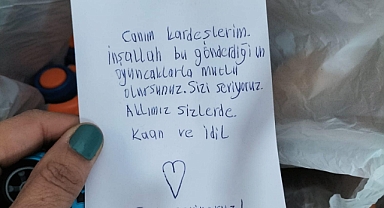 Canım kardeşlerim.
İnşallah bu gönderdiğim
oyuncaklarla mutlu
olursunuz. Sizi seviyoruz.
Aklımız sizlerde.
Kaan ve İdil